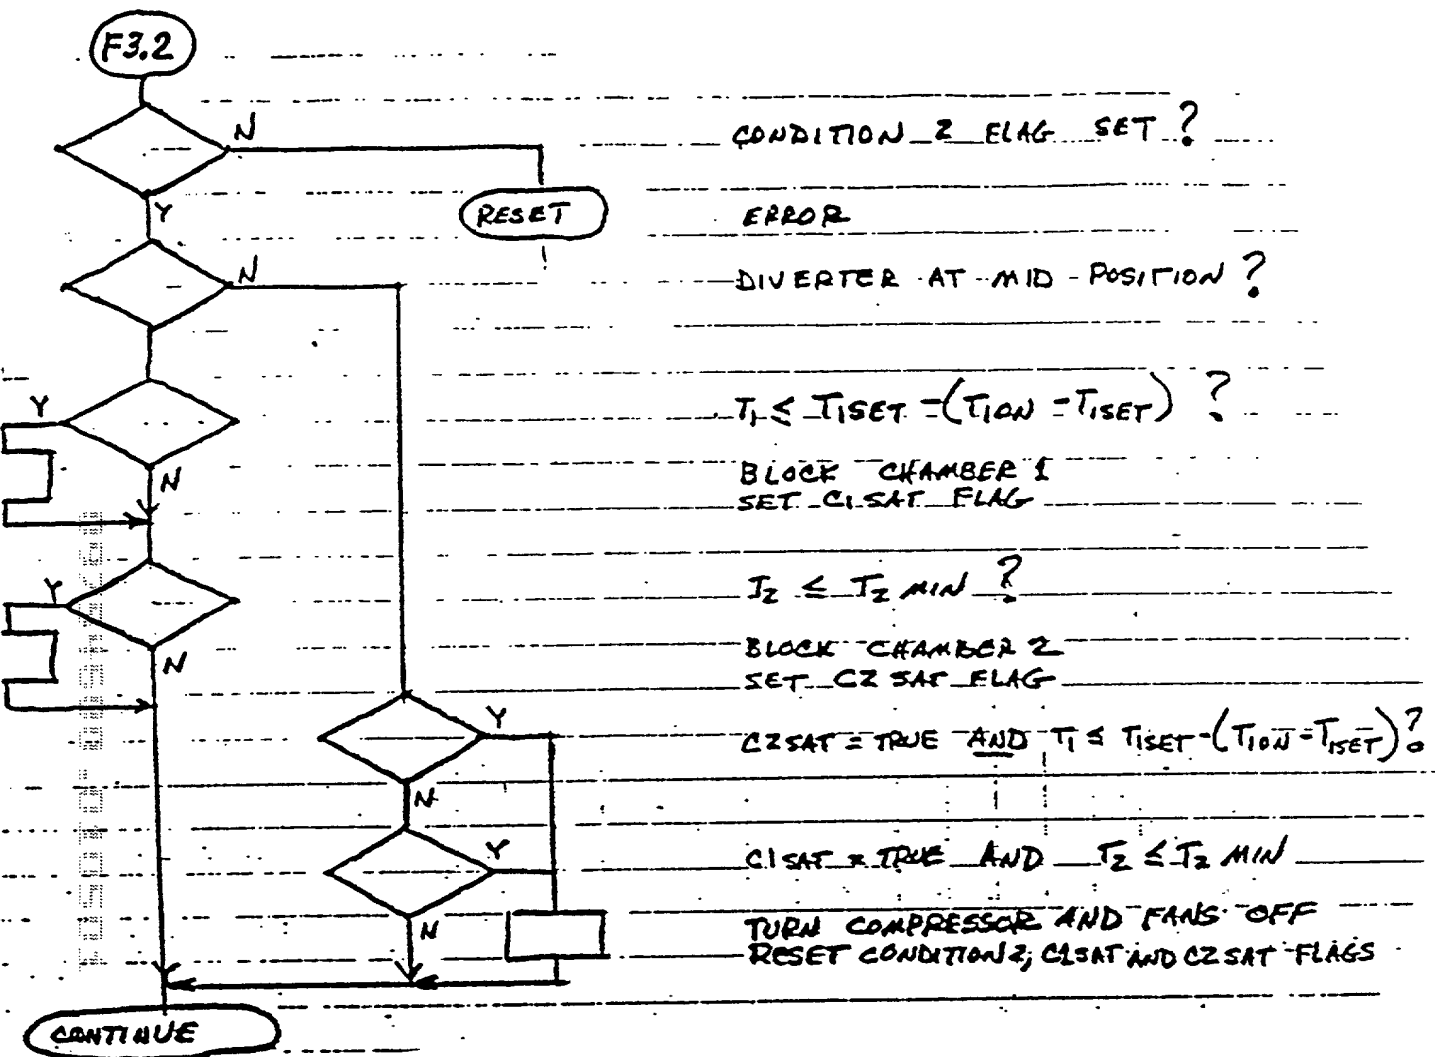 F3.2
N
CONDITION 2 FLAG SET ?
Y
RESET
ERROR
N
DIVERTER AT MID-POSITION ?
Y
T1 ≤ T1SET -(T1ON - T1SET) ?
N
BLOCK CHAMBER 1
SET C1SAT FLAG
Y
T2 ≤ T2 MIN ?
N
BLOCK CHAMBER 2
SET C2 SAT FLAG
Y
C2SAT = TRUE AND T1 ≤ T1SET -(T1ON - T1SET) ?
N
Y
C1SAT = TRUE AND T2 ≤ T2 MIN
N
TURN COMPRESSOR AND FANS OFF
RESET CONDITION 2; C1SAT AND C2SAT FLAGS
CONTINUE